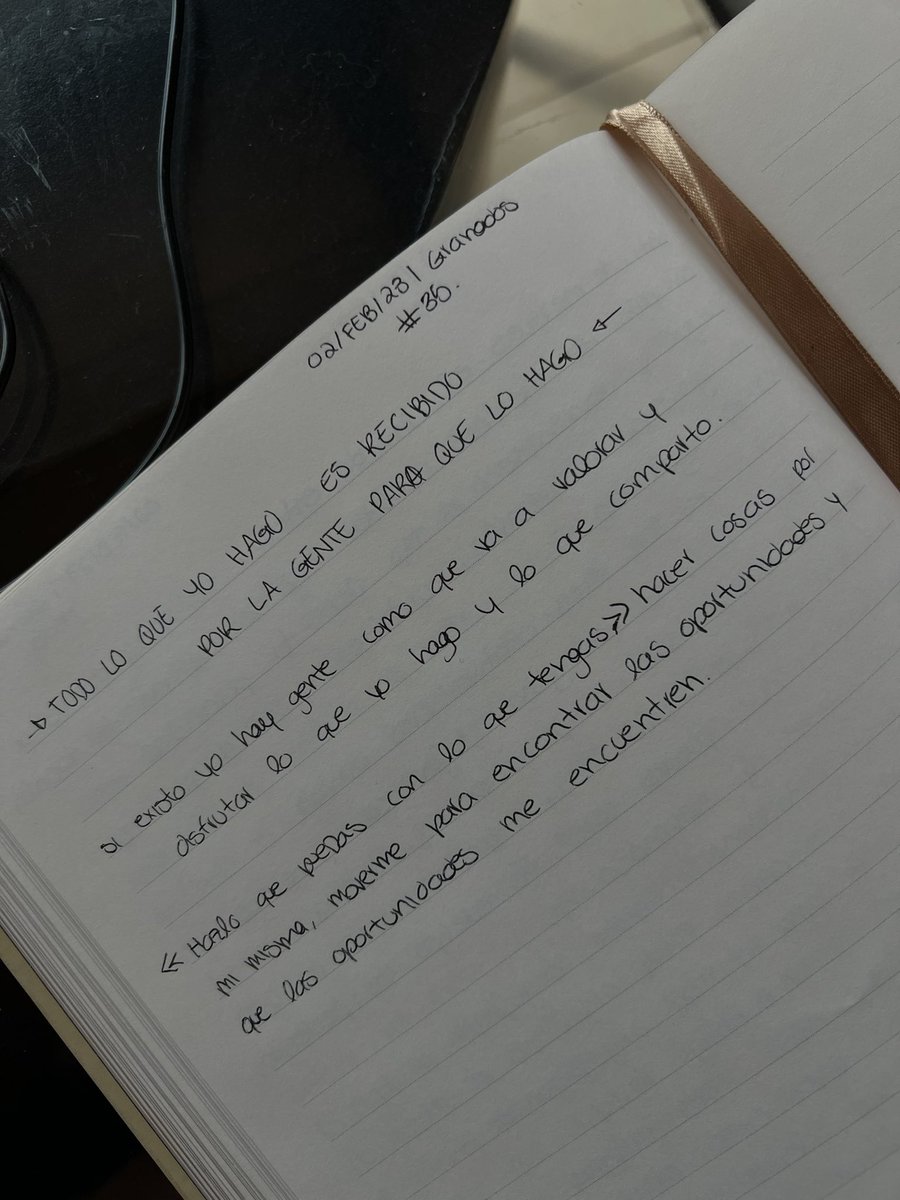 02/FEB/23 | Granados
#35.
→ TODO LO QUE YO HAGO ES RECIBIDO
POR LA GENTE PARA QUE LO HAGO ←
si existo yo hay gente como que va a valorar y
disfrutar lo que yo hago y lo que comparto.
« Hazlo que puedas con lo que tengas,» hacer cosas por
mi misma, moverme para encontrar las oportunidades y
que las oportunidades me encuentren.